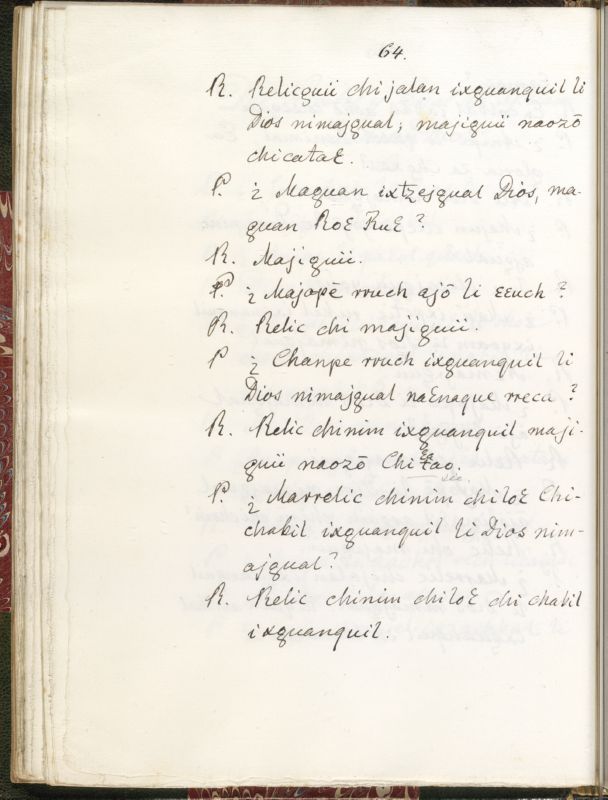 64.
R. Relicguii chi jalan ixguanquil li
Dios nimajgual; majiguii naozō
chicataɛ.
P. ¿ Maguan ixtzejgual Dios, ma-
guan Roɛ Ruɛ?
R. Majiguii.
P. ¿ Majopē rruch ajō li ɛɛuch?
R. Relic chi majiguii.
P ¿ Chanpe rruch ixguanquil li
Dios nimajgual naɛnaque rreca?
R. Relic chinim ixguanquil maji-
guii naozō Chitao.
P. ¿ Marrelic chinim chiloɛ Chi-
chabil ixguanquil li Dios nim-
ajgual?
R. Relic chinim chiloɛ chi chabil
ixguanquil.